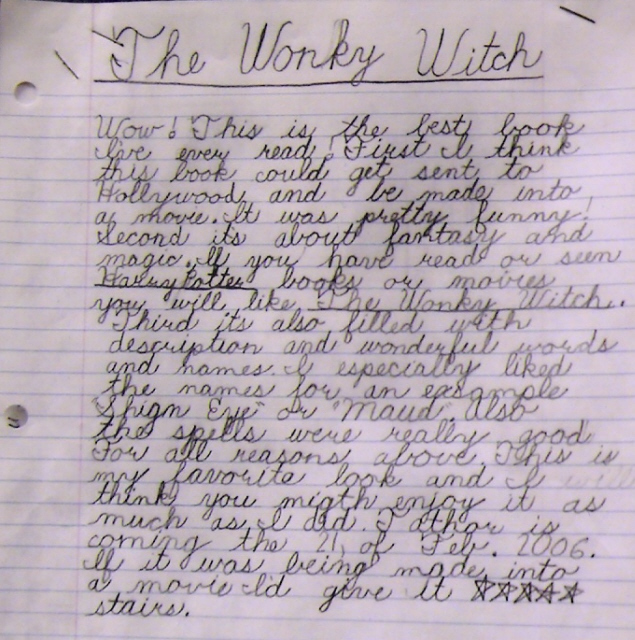 The Wonky Witch
Wow! This is the best book
I've ever read! First I think
this book could get sent to
Hollywood and be made into
a movie. It was pretty funny!
Second its about fantasy and
magic. If you have read or seen
Harry Potter books or movies
you will like The Wonky Witch.
Third its also filled with
description and wonderful words
and names. I especially liked
the names for an exsample
"Shign Eye" or "Maud. Also
the spells were really good
For all reasons above, This is
my favorite look and I will
think you migth enjoy it as
much as I did. T athor is
coming the 21, of Feb. 2006.
If it was being made into
a movie I'd give it ☆☆☆☆☆
stairs.